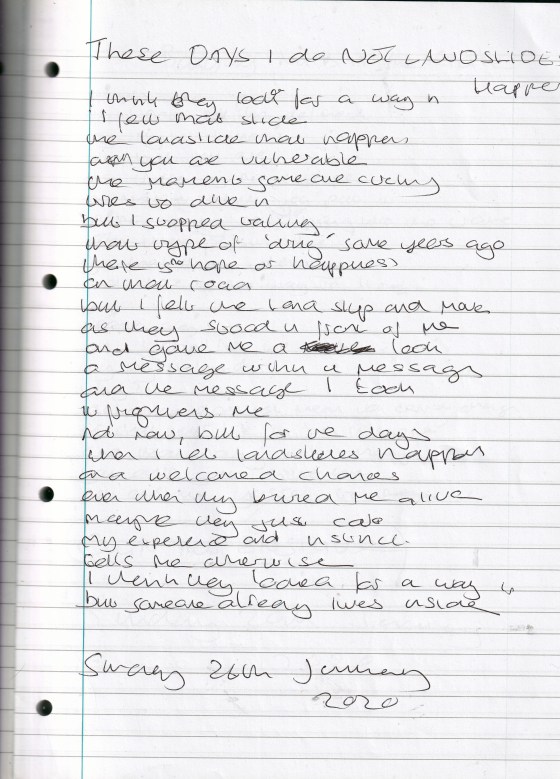 These DAYS I do NOT LANDSLIDE
happen
I think they look for a way n
I few that slide
the landslide that happens
when you are vulnerable
the moment someone cunning
tries to dive n
but I stopped taking
that type of 'drug' some years ago
there is no hope or happness
on that road
but I felt the land slip and move
as they stood n front of me
and gave me a look
a message within a message
and the message I took
it frightens me
not now, but for the days
when I let landslides happen
and welcomed chances
even when they buried me alive
maybe they just care
my experience and instinct
tells me otherwise
I think they looked for a way in
but someone already lives inside
Sunday 26th January
2020